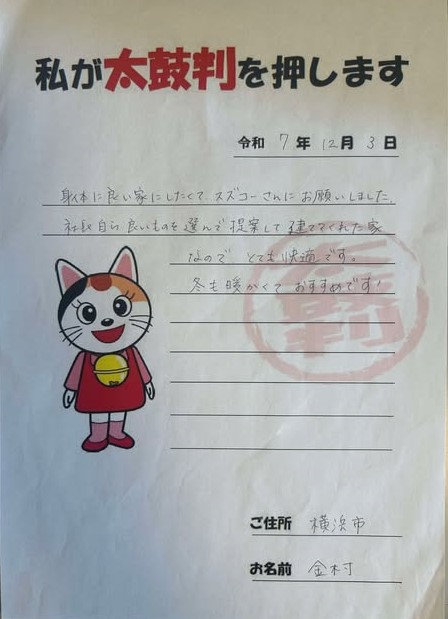 私が太鼓判を押します
令和 7年 12月 3日
身体に良い家にしたくて、スズコーさんにお願いしました。
社長自ら良いものを選んで提案して建ててくれた家
なので とても快適です。
冬も暖かくておすすめです!
太鼓判
ご住所 横浜市
お名前 金村